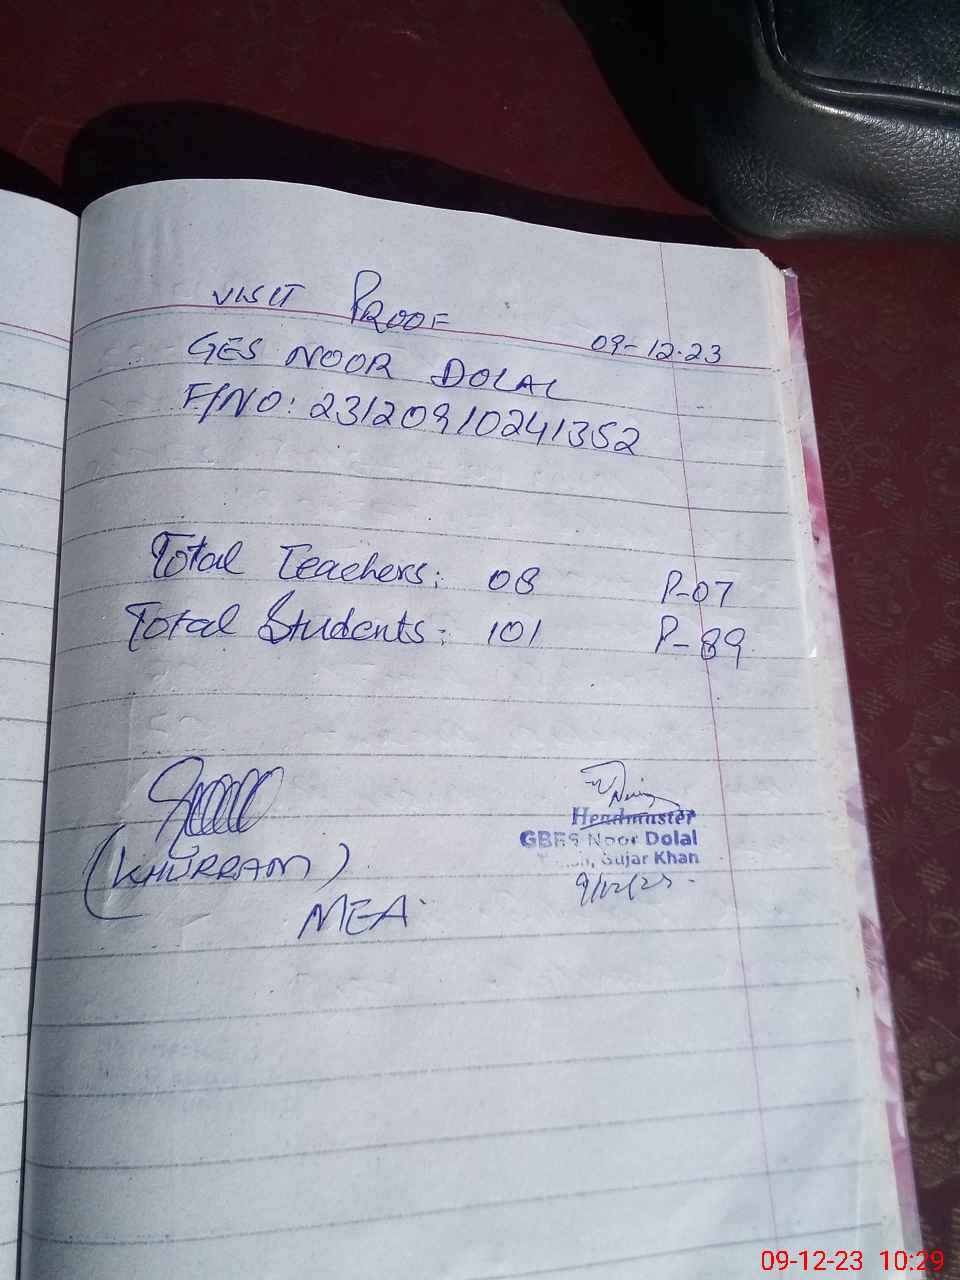 VISIT PROOF
09-12-23
GES NOOR DOLAL
F/NO: 23120910241352
Total Teachers: 08 P-07
Total Students: 101 P-89
(KHURRAM)
MEA
Headmaster
GBES Noor Dolal
Gujar Khan
9/12/23
09-12-23 10:29